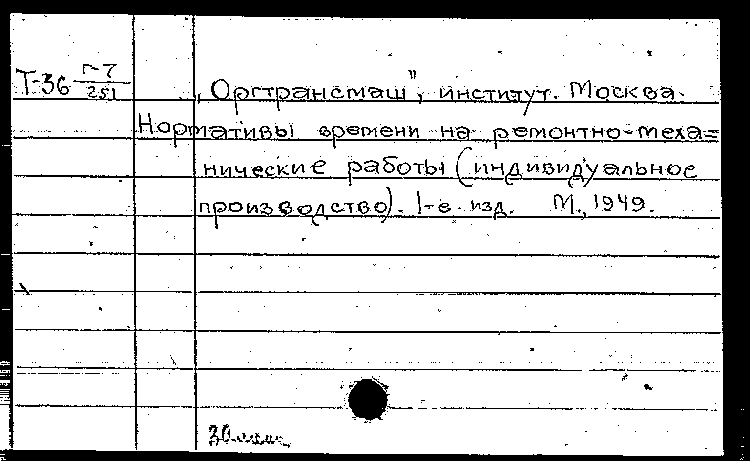 Т-36 Г-7/251
„Оргтрансмаш", институт. Москва.
Нормативы времени на ремонтно-меха=
нические работы (индивидуальное
производство). 1-е изд. М., 1949.